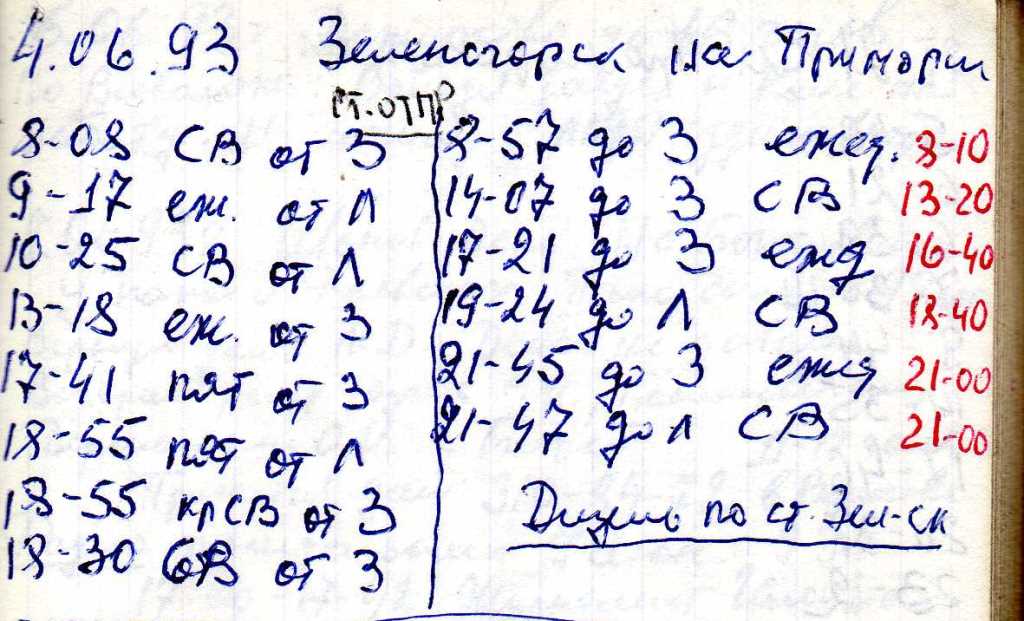 4.06.93 Зеленогорск на Приморск
ст. отпр.
8-08 СВ от З
9-17 еж. от Л
10-25 СВ от Л
13-18 еж. от З
17-41 пят от З
18-55 пят от Л
18-55 крСВ от З
18-30 СВ от З
8-57 до З ежед. 8-10
14-07 до З СВ 13-20
17-21 до З ежд 16-40
19-24 до Л СВ 18-40
21-45 до З ежд 21-00
21-47 до Л СВ 21-00
Дизель по ст. Зел-ск